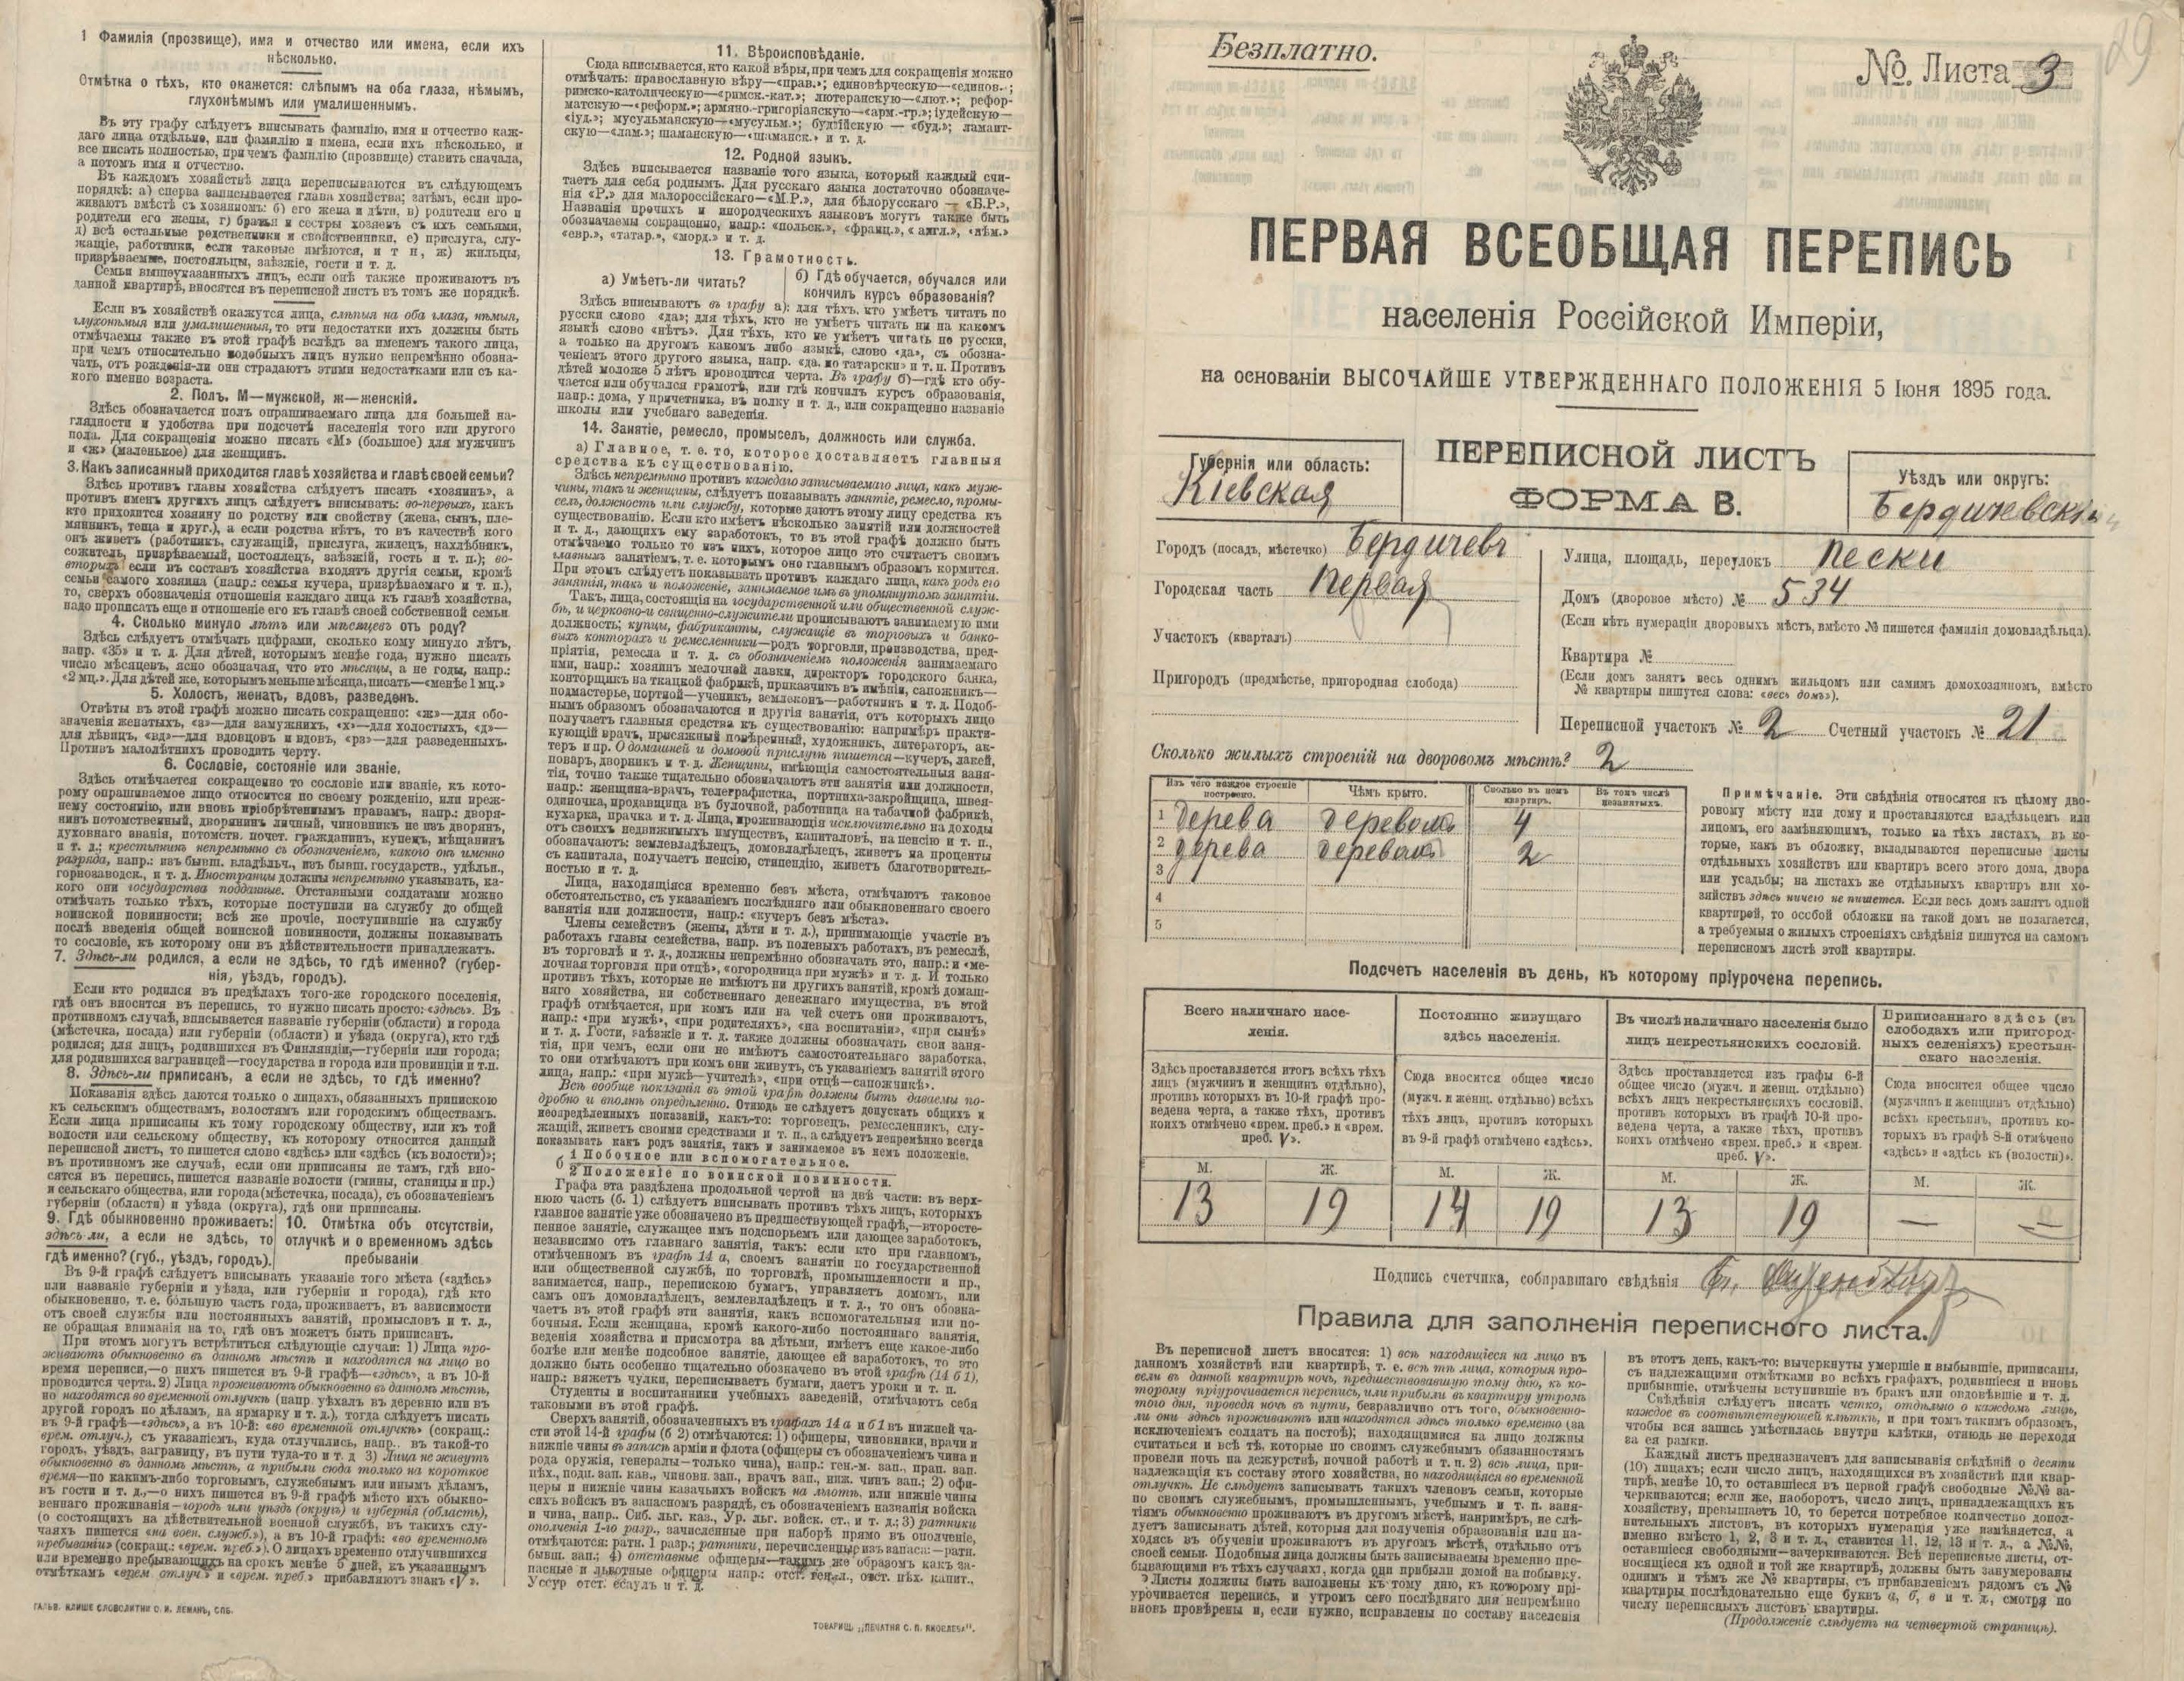 1 Фамилія (прозвище), имя и отчество или имена, если ихъ
нѣсколько.
Отмѣтка о тѣхъ, кто окажется: слѣпымъ на оба глаза, нѣмымъ,
глухонѣмымъ или умалишеннымъ.
Въ эту графу слѣдуетъ вписывать фамилію, имя и отчество каж-
даго лица отдѣльно, или фамилію и имена, если ихъ нѣсколько, и
все писать полностью, при чемъ фамилію (прозвище) ставить сначала,
а потомъ имя и отчество.
Въ каждомъ хозяйствѣ лица переписываются въ слѣдующемъ
порядкѣ: а) сперва записывается глава хозяйства; затѣмъ, если про-
живаютъ вмѣстѣ съ хозяиномъ: б) его жена и дѣти, в) родители его и
родители его жены, г) братья и сестры хозяевъ съ ихъ семьями,
д) всѣ остальные родственники и свойственники, е) прислуга, слу-
жащіе, работники, если таковые имѣются, и т п, ж) жильцы,
призрѣваемые, постояльцы, заѣзжіе, гости и т. д.
Семьи вышеуказанныхъ лицъ, если онѣ также проживаютъ въ
данной квартирѣ, вносятся въ переписной листъ въ томъ же порядкѣ.
Если въ хозяйствѣ окажутся лица, слѣпыя на оба глаза, нѣмыя,
глухонѣмыя или умалишенныя, то эти недостатки ихъ должны быть
отмѣчаемы также въ этой графѣ вслѣдъ за именемъ такого лица,
при чемъ относительно подобныхъ лицъ нужно непремѣнно обозна-
чать, отъ рожденія-ли они страдаютъ этими недостатками или съ ка-
кого именно возраста.
2. Полъ. М—мужской, ж—женскій.
Здѣсь обозначается полъ опрашиваемаго лица для большей на-
глядности и удобства при подсчетѣ населенія того или другого
пола. Для сокращенія можно писать «М» (большое) для мужчинъ
и «ж» (маленькое) для женщинъ.
3. Какъ записанный приходится главѣ хозяйства и главѣ своей семьи?
Здѣсь противъ главы хозяйства слѣдуетъ писать «хозяинъ», а
противъ именъ другихъ лицъ слѣдуетъ вписывать: во-первыхъ, какъ
кто приходится хозяину по родству или свойству (жена, сынъ, пле-
мянникъ, теща и друг.), а если родства нѣтъ, то въ качествѣ кого
онъ живетъ (работникъ, служащій, прислуга, жилецъ, нахлѣбникъ,
сожитель, призрѣваемый, постоялецъ, заѣзжій, гость и т. п.); во-
вторыхъ если въ составъ хозяйства входятъ другія семьи, кромѣ
семьи самого хозяина (напр.: семья кучера, призрѣваемаго и т. п.),
то, сверхъ обозначенія отношенія каждаго лица къ главѣ хозяйства,
надо прописать еще и отношеніе его къ главѣ своей собственной семьи
4. Сколько минуло лѣтъ или мѣсяцевъ отъ роду?
Здѣсь слѣдуетъ отмѣчать цифрами, сколько кому минуло лѣтъ,
напр. «35» и т. д. Для дѣтей, которымъ менѣе года, нужно писать
число мѣсяцевъ, ясно обозначая, что это мѣсяцы, а не годы, напр.:
«2 мц.». Для дѣтей же, которымъ меньше мѣсяца, писать—«менѣе 1 мц.»
5. Холостъ, женатъ, вдовъ, разведенъ.
Отвѣты въ этой графѣ можно писать сокращенно: «ж»—для обо-
значенія женатыхъ, «з»—для замужнихъ, «х»—для холостыхъ, «д»—
для дѣвицъ, «вд»—для вдовцовъ и вдовъ, «рз»—для разведенныхъ.
Противъ малолѣтнихъ проводить черту.
6. Сословіе, состояніе или званіе.
Здѣсь отмѣчается сокращенно то сословіе или званіе, къ кото-
рому опрашиваемое лицо относится по своему рожденію, или преж-
нему состоянію, или вновь пріобрѣтеннымъ правамъ, напр.: дворя-
нинъ потомственный, дворянинъ личный, чиновникъ не изъ дворянъ,
духовнаго званія, потомств. почет. гражданинъ, купецъ, мѣщанинъ
и т. д.; крестьянинъ непремѣнно съ обозначеніемъ, какого онъ именно
разряда, напр.: изъ бывш. владѣльч., изъ бывш. государств., удѣльн.,
горнозаводск., и т. д. Иностранцы должны непремѣнно указывать, ка-
кого они государства подданные. Отставными солдатами можно
отмѣчать только тѣхъ, которые поступили на службу до общей
воинской повинности; всѣ же прочіе, поступившіе на службу
послѣ введенія общей воинской повинности, должны показывать
то сословіе, къ которому они въ дѣйствительности принадлежатъ.
7. Здѣсь-ли родился, а если не здѣсь, то гдѣ именно? (губер-
нія, уѣздъ, городъ).
Если кто родился въ предѣлахъ того-же городского поселенія,
гдѣ онъ вносится въ перепись, то нужно писать просто: «здѣсь». Въ
противномъ случаѣ, вписывается названіе губерніи (области) и города
(мѣстечка, посада) или губерніи (области) и уѣзда (округа), кто гдѣ
родился; для лицъ, родившихся въ Финляндіи,—губерніи или города;
для родившихся заграницей—государства и города или провинціи и т.п.
8. Здѣсь-ли приписанъ, а если не здѣсь, то гдѣ именно?
Показанія здѣсь даются только о лицахъ, обязанныхъ припискою
къ сельскимъ обществамъ, волостямъ или городскимъ обществамъ.
Если лица приписаны къ тому городскому обществу, или къ той
волости или сельскому обществу, къ которому относится данный
переписной листъ, то пишется слово «здѣсь» или «здѣсь (къ волости)»;
въ противномъ же случаѣ, если они приписаны не тамъ, гдѣ вно-
сятся въ перепись, пишется названіе волости (гмины, станицы и пр.)
и сельскаго общества, или города (мѣстечка, посада), съ обозначеніемъ
губерніи (области) и уѣзда (округа), гдѣ они приписаны.
9. Гдѣ обыкновенно проживаетъ:
здѣсь ли, а если не здѣсь, то
гдѣ именно? (губ., уѣздъ, городъ).
10. Отмѣтка объ отсутствіи,
отлучкѣ и о временномъ здѣсь
пребываніи
Въ 9-й графѣ слѣдуетъ вписывать указаніе того мѣста («здѣсь»
или названіе губерніи и уѣзда, или губерніи и города), гдѣ кто
обыкновенно, т. е. большую часть года, проживаетъ, въ зависимости
отъ своей службы или постоянныхъ занятій, промысловъ и т. д.,
не обращая вниманія на то, гдѣ онъ можетъ быть приписанъ.
При этомъ могутъ встрѣтиться слѣдующіе случаи: 1) Лица про-
живаютъ обыкновенно въ данномъ мѣстѣ и находятся на лицо во
время переписи,—о нихъ пишется въ 9-й графѣ—«здѣсь», а въ 10-й
проводится черта. 2) Лица проживаютъ обыкновенно въ данномъ мѣстѣ,
но находятся во временной отлучкѣ (напр. уѣхалъ въ деревню или въ
другой городъ по дѣламъ, на ярмарку и т. д.), тогда слѣдуетъ писать
въ 9-й графѣ—«здѣсь», а въ 10-й: «во временной отлучкѣ» (сокращ.:
врем. отлуч.), съ указаніемъ, куда отлучились, напр.. въ такой-то
городъ, уѣздъ, заграницу, въ пути туда-то и т. д 3) Лица не живутъ
обыкновенно въ данномъ мѣстѣ, а прибыли сюда только на короткое
время—по какимъ-либо торговымъ, служебнымъ или инымъ дѣламъ,
въ гости и т. д.,—о нихъ пишется въ 9-й графѣ мѣсто ихъ обыкно-
веннаго проживанія—городъ или уѣздъ (округъ) и губернія (область),
(о состоящихъ на дѣйствительной военной службѣ, въ такихъ слу-
чаяхъ пишется «на воен. службѣ»), а въ 10-й графѣ: «во временномъ
пребываніи» (сокращ.: «врем. преб.»). О лицахъ временно отлучившихся
или временно пребывающихъ на срокъ менѣе 5 дней, къ указаннымъ
отмѣткамъ «врем. отлуч.» и «врем. преб.» прибавляютъ знакъ «V».
ГАЛЬВ. КЛИШЕ СЛОВОЛИТНИ О. И. ЛЕМАНЪ, СПБ.
11. Вѣроисповѣданіе.
Сюда вписывается, кто какой вѣры, при чемъ для сокращенія можно
отмѣчать: православную вѣру—«прав.»; единовѣрческую—«единов.»;
римско-католическую—«римск.-кат.»; лютеранскую—«лют.»; рефор-
матскую—«реформ.»; армяно-григоріанскую—«арм.-гр.»; іудейскую—
«іуд.»; мусульманскую—«мусульм.»; буддійскую — «буд.»; ламаит-
скую—«лам.»; шаманскую—«шаманск.» и т. д.
12. Родной языкъ.
Здѣсь вписывается названіе того языка, который каждый счи-
таетъ для себя роднымъ. Для русскаго языка достаточно обозначе-
нія «Р.» для малороссійскаго—«М.Р.», для бѣлорусскаго — «Б.Р.»,
Названія прочихъ и инородческихъ языковъ могутъ также быть
обозначаемы сокращенно, напр.: «польск.», «франц.», «англ.», «нѣм.»
«евр.», «татар.», «морд.» и т. д.
13. Грамотность.
а) Умѣетъ-ли читать?
б) Гдѣ обучается, обучался или
кончилъ курсъ образованія?
Здѣсь вписываютъ въ графу а): для тѣхъ, кто умѣетъ читать по
русски слово «да»; для тѣхъ, кто не умѣетъ читать ни на какомъ
языкѣ слово «нѣтъ». Для тѣхъ, кто не умѣетъ читать по русски,
а только на другомъ какомъ либо языкѣ, слово «да», съ обозна-
ченіемъ этого другого языка, напр. «да. по татарски» и т. п. Противъ
дѣтей моложе 5 лѣтъ проводится черта. Въ графу б)—гдѣ кто обу-
чается или обучался грамотѣ, или гдѣ кончилъ курсъ образованія,
напр.: дома, у причетника, въ полку и т. д., или сокращенно названіе
школы или учебнаго заведенія.
14. Занятіе, ремесло, промыселъ, должность или служба.
а) Главное, т. е. то, которое доставляетъ главныя
средства къ существованію.
Здѣсь непремѣнно противъ каждаго записываемаго лица, какъ муж-
чины, такъ и женщины, слѣдуетъ показывать занятіе, ремесло, промы-
селъ, должность или службу, которые даютъ этому лицу средства къ
существованію. Если кто имѣетъ нѣсколько занятій или должностей
и т. д., дающихъ ему заработокъ, то въ этой графѣ должно быть
отмѣчаемо только то изъ нихъ, которое лицо это считаетъ своимъ
главнымъ занятіемъ, т. е. которымъ оно главнымъ образомъ кормится.
При этомъ слѣдуетъ показывать противъ каждаго лица, какъ родъ его
занятія, такъ и положеніе, занимаемое имъ въ упомянутомъ занятіи.
Такъ, лица, состоящія на государственной или общественной служ-
бѣ, и церковно-и священно-служители прописываютъ занимаемую ими
должность; купцы, фабриканты, служащіе въ торговыхъ и банко-
выхъ конторахъ и ремесленники—родъ торговли, производства, пред-
пріятія, ремесла и т. д. съ обозначеніемъ положенія занимаемаго
ими, напр.: хозяинъ мелочной лавки, директоръ городского банка,
конторщикъ на ткацкой фабрикѣ, приказчикъ въ имѣніи, сапожникъ—
подмастерье, портной—ученикъ, землекопъ—работникъ и т. д. Подоб-
нымъ образомъ обозначаются и другія занятія, отъ которыхъ лицо
получаетъ главныя средства къ существованію: напримѣръ практи-
кующій врачъ, присяжный повѣренный, художникъ, литераторъ, ак-
теръ и пр. О домашней и домовой прислугѣ пишется—кучеръ, лакей,
поваръ, дворникъ и т. д. Женщины, имѣющія самостоятельныя заня-
тія, точно также тщательно обозначаютъ эти занятія или должности,
напр.: женщина-врачъ, телеграфистка, портниха-закройщица, швея-
одиночка, продавщица въ булочной, работница на табачной фабрикѣ,
кухарка, прачка и т. д. Лица, проживающія исключительно на доходы
отъ своихъ недвижимыхъ имуществъ, капиталовъ, на пенсію и т. п.,
обозначаютъ: землевладѣлецъ, домовладѣлецъ, живетъ на проценты
съ капитала, получаетъ пенсію, стипендію, живетъ благотворитель-
ностью и т. д.
Лица, находящіяся временно безъ мѣста, отмѣчаютъ таковое
обстоятельство, съ указаніемъ послѣдняго или обыкновеннаго своего
занятія или должности, напр.: «кучеръ безъ мѣста».
Члены семействъ (жены, дѣти и т. д.), принимающіе участіе въ
работахъ главы семейства, напр. въ полевыхъ работахъ, въ ремеслѣ,
въ торговлѣ и т. д., должны непремѣнно обозначать это, напр.: и «ме-
лочная торговля при отцѣ», «огородница при мужѣ» и т. д. И только
противъ тѣхъ, которые не имѣютъ ни другихъ занятій, кромѣ домаш-
няго хозяйства, ни собственнаго денежнаго имущества, въ этой
графѣ отмѣчается, при комъ или на чей счетъ они проживаютъ,
напр.: «при мужѣ», «при родителяхъ», «на воспитаніи», «при сынѣ»
и т. д. Гости, заѣзжіе и т. д. также должны обозначать свои заня-
тія, при чемъ, если они не имѣютъ самостоятельнаго заработка,
то они отмѣчаютъ при комъ они живутъ, съ указаніемъ занятій этого
лица, напр.: «при мужѣ—учителѣ», «при отцѣ—сапожникѣ».
Всѣ вообще показанія въ этой графѣ должны быть даваемы по-
дробно и вполнѣ опредѣленно. Отнюдь не слѣдуетъ допускать общихъ и
неопредѣленныхъ показаній, какъ-то: торговецъ, ремесленникъ, слу-
жащій, живетъ своими средствами и т. п., а слѣдуетъ непремѣнно всегда
показывать какъ родъ занятія, такъ и занимаемое въ немъ положеніе.
б 1 Побочное или вспомогательное.
2 Положеніе по воинской повинности.
Графа эта раздѣлена продольной чертой на двѣ части: въ верх-
нюю часть (б. 1) слѣдуетъ вписывать противъ тѣхъ лицъ, которыхъ
главное занятіе уже обозначено въ предшествующей графѣ,—второсте-
пенное занятіе, служащее имъ подспорьемъ или дающее заработокъ,
независимо отъ главнаго занятія, такъ: если кто при главномъ,
отмѣченномъ въ графѣ 14 а, своемъ занятіи по государственной
или общественной службѣ, по торговлѣ, промышленности и пр.,
занимается, напр., перепискою бумагъ, управляетъ домомъ, или
самъ онъ домовладѣлецъ, землевладѣлецъ и т. д., то онъ обозна-
чаетъ въ этой графѣ эти занятія, какъ вспомогательныя или по-
бочныя. Если женщина, кромѣ какого-либо постояннаго занятія,
веденія хозяйства и присмотра за дѣтьми, имѣетъ еще какое-либо
болѣе или менѣе подсобное занятіе, дающее ей заработокъ, то это
должно быть особенно тщательно обозначено въ этой графѣ (14 б 1),
напр.: вяжетъ чулки, переписываетъ бумаги, даетъ уроки и т. п.
Студенты и воспитанники учебныхъ заведеній, отмѣчаютъ себя
таковыми въ этой графѣ.
Сверхъ занятій, обозначенныхъ въ графахъ 14 а и б 1 въ нижней ча-
сти этой 14-й графы (б 2) отмѣчаются: 1) офицеры, чиновники, врачи и
нижніе чины въ запасѣ арміи и флота (офицеры съ обозначеніемъ чина и
рода оружія, генералы—только чина), напр.: ген.-м. зап., прап. зап.
пѣх., подп. зап. кав., чиновн. зап., врачъ зап., ниж. чинъ зап.; 2) офи-
церы и нижніе чины казачьихъ войскъ на льготѣ, или нижніе чины
сихъ войскъ въ запасномъ разрядѣ, съ обозначеніемъ названія войска
и чина, напр.. Сиб. льг. каз., Ур. льг. войск. ст., и т. д.; 3) ратники
ополченія 1-го разр., зачисленные при наборѣ прямо въ ополченіе,
отмѣчаются: ратн. 1 разр.; ратники, перечисленные изъ запаса:—ратн.
бывш. зап.; 4) отставные офицеры—такимъ же образомъ какъ за-
пасные и льготные офицеры напр.: отст. генл., отст. пѣх. капит.,
Уссур отст. есаулъ и т. д.
ТОВАРИЩ. „ПЕЧАТНЯ С. П. ЯКОВЛЕВА".
Безплатно.
№. Листа 3
89
ПЕРВАЯ ВСЕОБЩАЯ ПЕРЕПИСЬ
населенія Россійской Имперіи,
на основаніи ВЫСОЧАЙШЕ УТВЕРЖДЕННАГО ПОЛОЖЕНІЯ 5 Іюня 1895 года.
ПЕРЕПИСНОЙ ЛИСТЪ
ФОРМА В.
Губернія или область:
Кіевская
Уѣздъ или округъ:
Бердичевскій
Городъ (посадъ, мѣстечко) Бердичевъ
Городская часть Первая
Участокъ (кварталъ)
Пригородъ (предмѣстье, пригородная слобода)
Улица, площадь, переулокъ Пески
Домъ (дворовое мѣсто) № 534
(Если нѣтъ нумераціи дворовыхъ мѣстъ, вмѣсто № пишется фамилія домовладѣльца).
Квартира №
(Если домъ занятъ весь однимъ жильцомъ или самимъ домохозяиномъ, вмѣсто
№ квартиры пишутся слова: «весь домъ»).
Переписной участокъ № 2 Счетный участокъ № 21
Сколько жилыхъ строеній на дворовомъ мѣстѣ? 2
Изъ чего каждое строеніе построено.
Чѣмъ крыто.
Сколько въ немъ квартиръ.
Въ томъ числѣ незанятыхъ.
1 дерева деревомъ 4
2 дерева деревомъ 2
3
4
5
Примѣчаніе. Эти свѣдѣнія относятся къ цѣлому дво-
ровому мѣсту или дому и проставляются владѣльцемъ или
лицомъ, его замѣняющимъ, только на тѣхъ листахъ, въ ко-
торые, какъ въ обложку, вкладываются переписные листы
отдѣльныхъ хозяйствъ или квартиръ всего этого дома, двора
или усадьбы; на листахъ же отдѣльныхъ квартиръ или хо-
зяйствъ здѣсь ничего не пишется. Если весь домъ занятъ одной
квартирой, то особой обложки на такой домъ не полагается,
а требуемыя о жилыхъ строеніяхъ свѣдѣнія пишутся на самомъ
переписномъ листѣ этой квартиры.
Подсчетъ населенія въ день, къ которому пріурочена перепись.
Всего наличнаго насе-
ленія.
Здѣсь проставляется итогъ всѣхъ тѣхъ
лицъ (мужчинъ и женщинъ отдѣльно),
противъ которыхъ въ 10-й графѣ про-
ведена черта, а также тѣхъ, противъ
коихъ отмѣчено «врем. преб.» и «врем.
преб. V».
М. Ж.
13 19
Постоянно живущаго
здѣсь населенія.
Сюда вносится общее число
(мужч. и женщ. отдѣльно) всѣхъ
тѣхъ лицъ, противъ которыхъ
въ 9-й графѣ отмѣчено «здѣсь».
М. Ж.
14 19
Въ числѣ наличнаго населенія было
лицъ некрестьянскихъ сословій.
Здѣсь проставляется изъ графы 6-й
общее число (мужч. и женщ. отдѣльно)
всѣхъ лицъ некрестьянскихъ сословій,
противъ которыхъ въ графѣ 10-й про-
ведена черта, а также тѣхъ, противъ
коихъ отмѣчено «врем. преб.» и «врем.
преб. V».
М. Ж.
13 19
Приписаннаго здѣсь (въ
слободахъ или пригород-
ныхъ селеніяхъ) крестьян-
скаго населенія.
Сюда вносится общее число
(мужчинъ и женщинъ отдѣльно)
всѣхъ крестьянъ, противъ ко-
торыхъ въ графѣ 8-й отмѣчено
«здѣсь» и «здѣсь къ (волости)».
М. Ж.
— —
Подпись счетчика, собиравшаго свѣдѣнія
Правила для заполненія переписного листа.
Въ переписной листъ вносятся: 1) всѣ находящіеся на лицо въ
данномъ хозяйствѣ или квартирѣ, т. е. всѣ тѣ лица, которыя про-
вели въ данной квартирѣ ночь, предшествовавшую тому дню, къ ко-
торому пріурочивается перепись, или прибыли въ квартиру утромъ
того дня, проведя ночь въ пути, безразлично отъ того, обыкновенно-
ли они здѣсь проживаютъ или находятся здѣсь только временно (за
исключеніемъ солдатъ на постоѣ); находящимися на лицо должны
считаться и всѣ тѣ, которые по своимъ служебнымъ обязанностямъ
провели ночь на дежурствѣ, ночной работѣ и т. п. 2) всѣ лица, при-
надлежащія къ составу этого хозяйства, но находящіяся во временной
отлучкѣ. Не слѣдуетъ записывать такихъ членовъ семьи, которые
по своимъ служебнымъ, промышленнымъ, учебнымъ и т. п. заня-
тіямъ обыкновенно проживаютъ въ другомъ мѣстѣ, напримѣръ, не слѣ-
дуетъ записывать дѣтей, которыя для полученія образованія или на-
ходясь въ обученіи проживаютъ въ другомъ мѣстѣ, отдѣльно отъ
своей семьи. Подобныя лица должны быть записываемы временно пре-
бывающими въ тѣхъ случаяхъ, когда они прибыли домой на побывку.
Листы должны быть заполнены къ тому дню, къ которому прі-
урочивается перепись, и утромъ сего послѣдняго дня непремѣнно
вновь провѣрены и, если нужно, исправлены по составу населенія
въ этотъ день, какъ-то: вычеркнуты умершіе и выбывшіе, приписаны,
съ надлежащими отмѣтками во всѣхъ графахъ, родившіеся и вновь
прибывшіе, отмѣчены вступившіе въ бракъ или овдовѣвшіе и т. д.
Свѣдѣнія слѣдуетъ писать четко, отдѣльно о каждомъ лицѣ,
каждое въ соотвѣтствующей клѣткѣ, и при томъ такимъ образомъ,
чтобы вся запись умѣстилась внутри клѣтки, отнюдь не переходя
за ея рамки.
Каждый листъ предназначенъ для записыванія свѣдѣній о десяти
(10) лицахъ; если число лицъ, находящихся въ хозяйствѣ или квар-
тирѣ, менѣе 10, то оставшіеся въ первой графѣ свободные №№ за-
черкиваются; если же, наоборотъ, число лицъ, принадлежащихъ къ
хозяйству, превышаетъ 10, то берется потребное количество допол-
нительныхъ листовъ, въ которыхъ нумерація уже измѣняется, а
именно вмѣсто 1, 2, 3 и т. д., ставится 11, 12, 13 и т. д., а №№,
оставшіеся свободными—зачеркиваются. Всѣ переписные листы, от-
носящіеся къ одной и той же квартирѣ, должны быть занумерованы
однимъ и тѣмъ же № квартиры, съ прибавленіемъ рядомъ съ №
квартиры послѣдовательно еще буквъ а, б, в и т. д., смотря по
числу переписныхъ листовъ квартиры.
(Продолженіе слѣдуетъ на четвертой страницѣ).